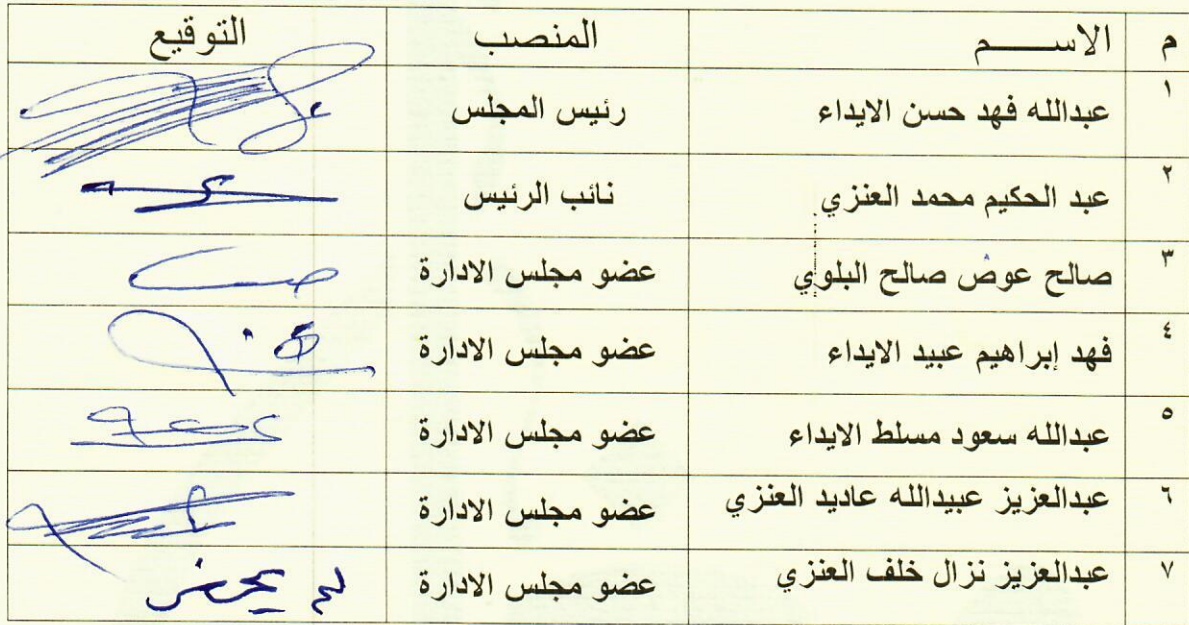 م الاســـــم المنصب التوقيع
١ عبدالله فهد حسن الايداء رئيس المجلس
٢ عبد الحكيم محمد العنزي نائب الرئيس
٣ صالح عوض صالح البلوي عضو مجلس الادارة
٤ فهد إبراهيم عبيد الايداء عضو مجلس الادارة
٥ عبدالله سعود مسلط الايداء عضو مجلس الادارة
٦ عبدالعزيز عبيدالله عاديد العنزي عضو مجلس الادارة
٧ عبدالعزيز نزال خلف العنزي عضو مجلس الادارة لم يحضر